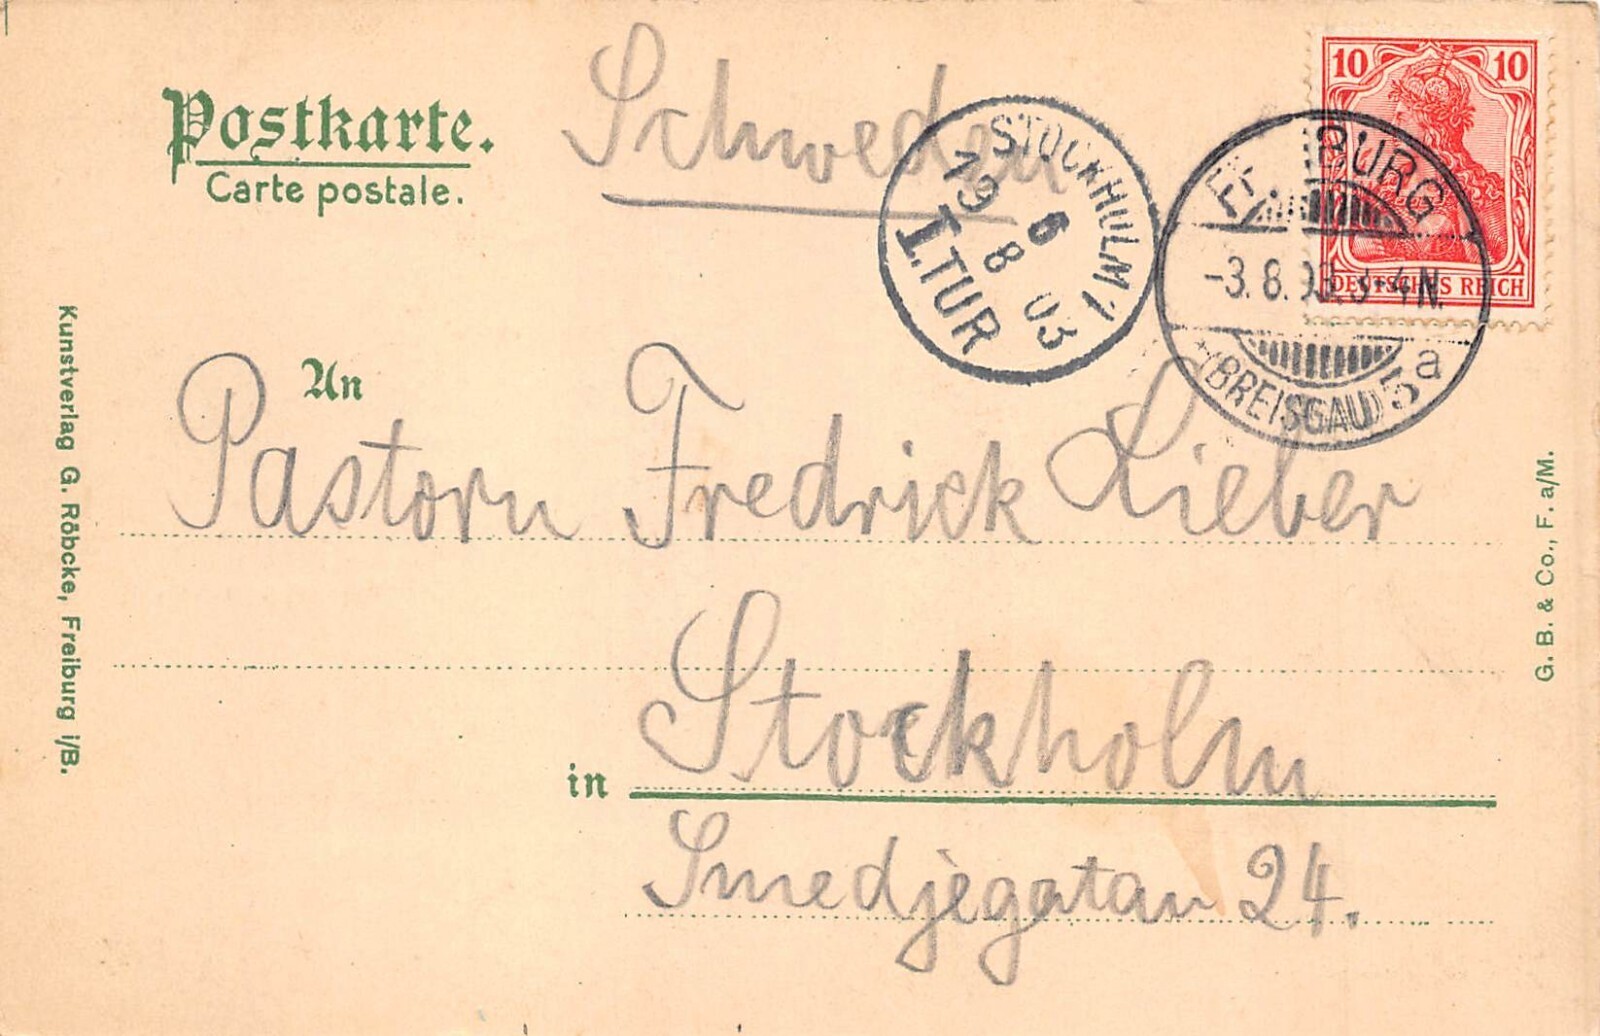 Postkarte.
Carte postale.
Schweden
10 10
DEUTSCHES REICH
STOCKHOLM 1
19 6
8 03
I.TUR
BURG
-3.8. 3-4N.
(BREISGAU) 5 a
An
Pastorn Fredrick Lieber
in Stockholm
Smedjegatan 24.
Kunstverlag G. Röbcke, Freiburg i/B.
G. B. & Co., F. a/M.